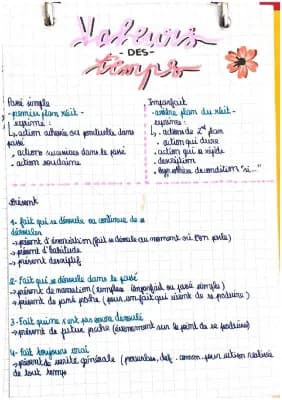 Valeurs
- DES -
temps
Passé simple
- premier plan récit -
- exprime :
↳ action achevée ou ponctuelle dans
passé
• actions successives dans le passé
• action soudaine
Imparfait
- arrière plan du récit -
- exprime :
↳ • actions de 2nd plan
• action qui dure
• action qui se répète
• description
• hypothèse de condition "si..."
Présent
1- Fait qui se déroule ou continue de se
dérouler
→ présent d'énonciation (fait se déroule au moment où l'on parle)
→ présent d'habitude
→ présent descriptif
2- Fait qui se déroule dans le passé
→ présent de narration (remplace imparfait ou passé simple)
→ présent de passé proche (pour un fait qui vient de se produire)
3- Fait qui ne s'est pas encore déroulé
→ présent de futur proche (évènement sur le point de se produire)
4- Fait toujours vrai
→ présent de vérité générale (proverbes, def. commun. pour action réalisée
de tout temps